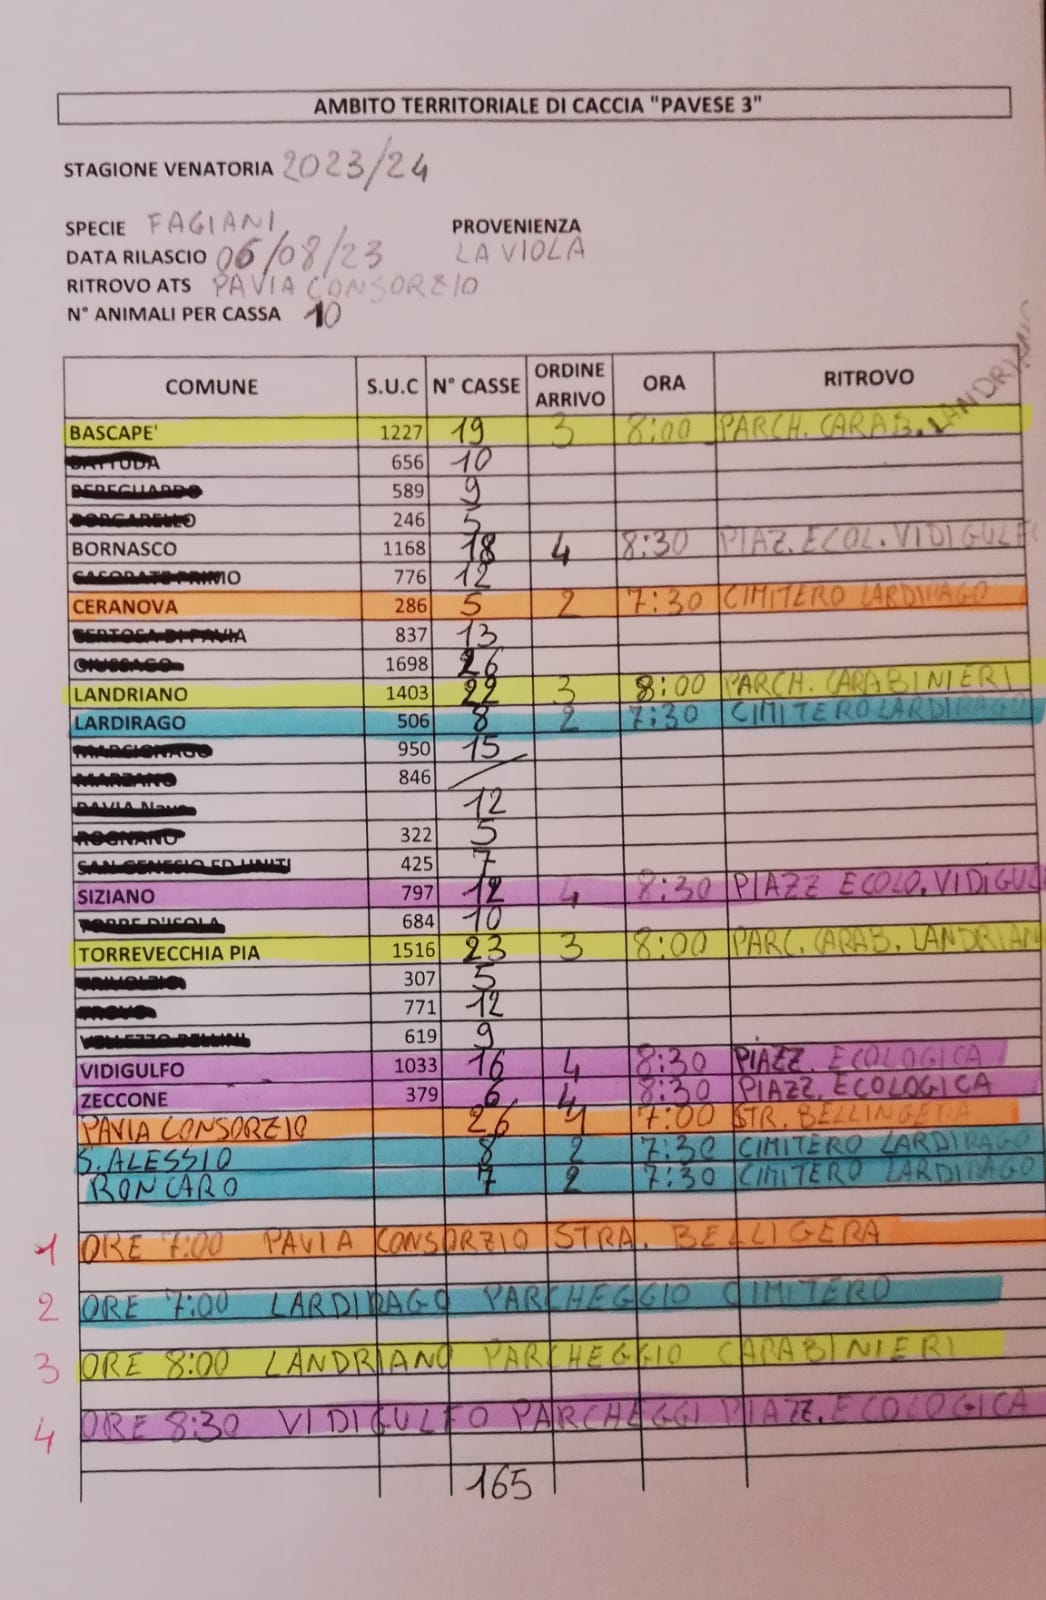 AMBITO TERRITORIALE DI CACCIA "PAVESE 3"
STAGIONE VENATORIA 2023/24
SPECIE FAGIANI PROVENIENZA
DATA RILASCIO 06/08/23 LA VIOLA
RITROVO ATS PAVIA CONSORZIO
N° ANIMALI PER CASSA 10
COMUNE S.U.C N° CASSE ORDINE ARRIVO ORA RITROVO
BASCAPE' 1227 19 3 8:00 PARCH. CARAB. LANDRIANO
BATTUDA 656 10
BEREGUARDO 589 9
BORGARELLO 246 5
BORNASCO 1168 18 4 8:30 PIAZ. ECOL. VIDIGULF
CASORATE PRIMO 776 12
CERANOVA 286 5 2 7:30 CIMITERO LARDIRAGO
CERTOSA DI PAVIA 837 13
GIUSSAGO 1698 26
LANDRIANO 1403 22 3 8:00 PARCH. CARABINIERI
LARDIRAGO 506 8 2 7:30 CIMITERO LARDIRAGO
MARCIGNAGO 950 15
MARZANO 846
PAVIA Nave 12
ROGNANO 322 5
SAN GENESIO ED UNITI 425 7
SIZIANO 797 12 4 8:30 PIAZZ ECOLO. VIDIGUL
TORRE D'ISOLA 684 10
TORREVECCHIA PIA 1516 23 3 8:00 PARC. CARAB. LANDRIAN
TRIVOLZIO 307 5
TROVO 771 12
VELLEZZO BELLINI 619 9
VIDIGULFO 1033 16 4 8:30 PIAZZ. ECOLOGICA
ZECCONE 379 6 4 8:30 PIAZZ. ECOLOGICA
PAVIA CONSORZIO 26 1 7:00 STR. BELLINGERA
S. ALESSIO 8 2 7:30 CIMITERO LARDIRAGO
RONCARO 7 2 7:30 CIMITERO LARDIRAGO
1 ORE 7:00 PAVIA CONSORZIO STRA. BELLIGERA
2 ORE 7:00 LARDIRAGO PARCHEGGIO CIMITERO
3 ORE 8:00 LANDRIANO PARCHEGGIO CARABINIERI
4 ORE 8:30 VIDIGULFO PARCHEGGI PIAZZ. ECOLOGICA
165